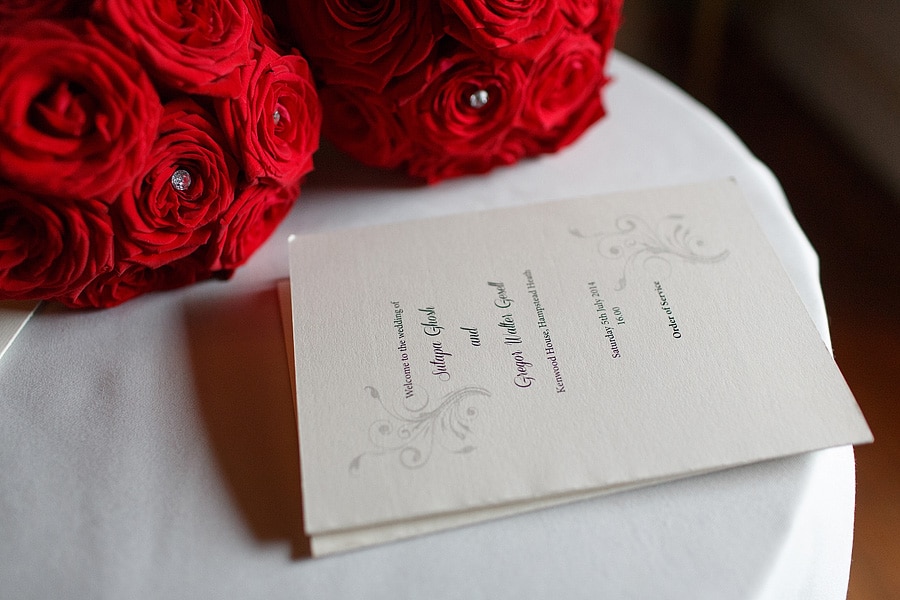 Welcome to the wedding of
Sutapa Ghosh
and
Gregor Walter Gosell
Kenwood House, Hampstead Heath
Saturday 5th July 2014
16:00
Order of Service